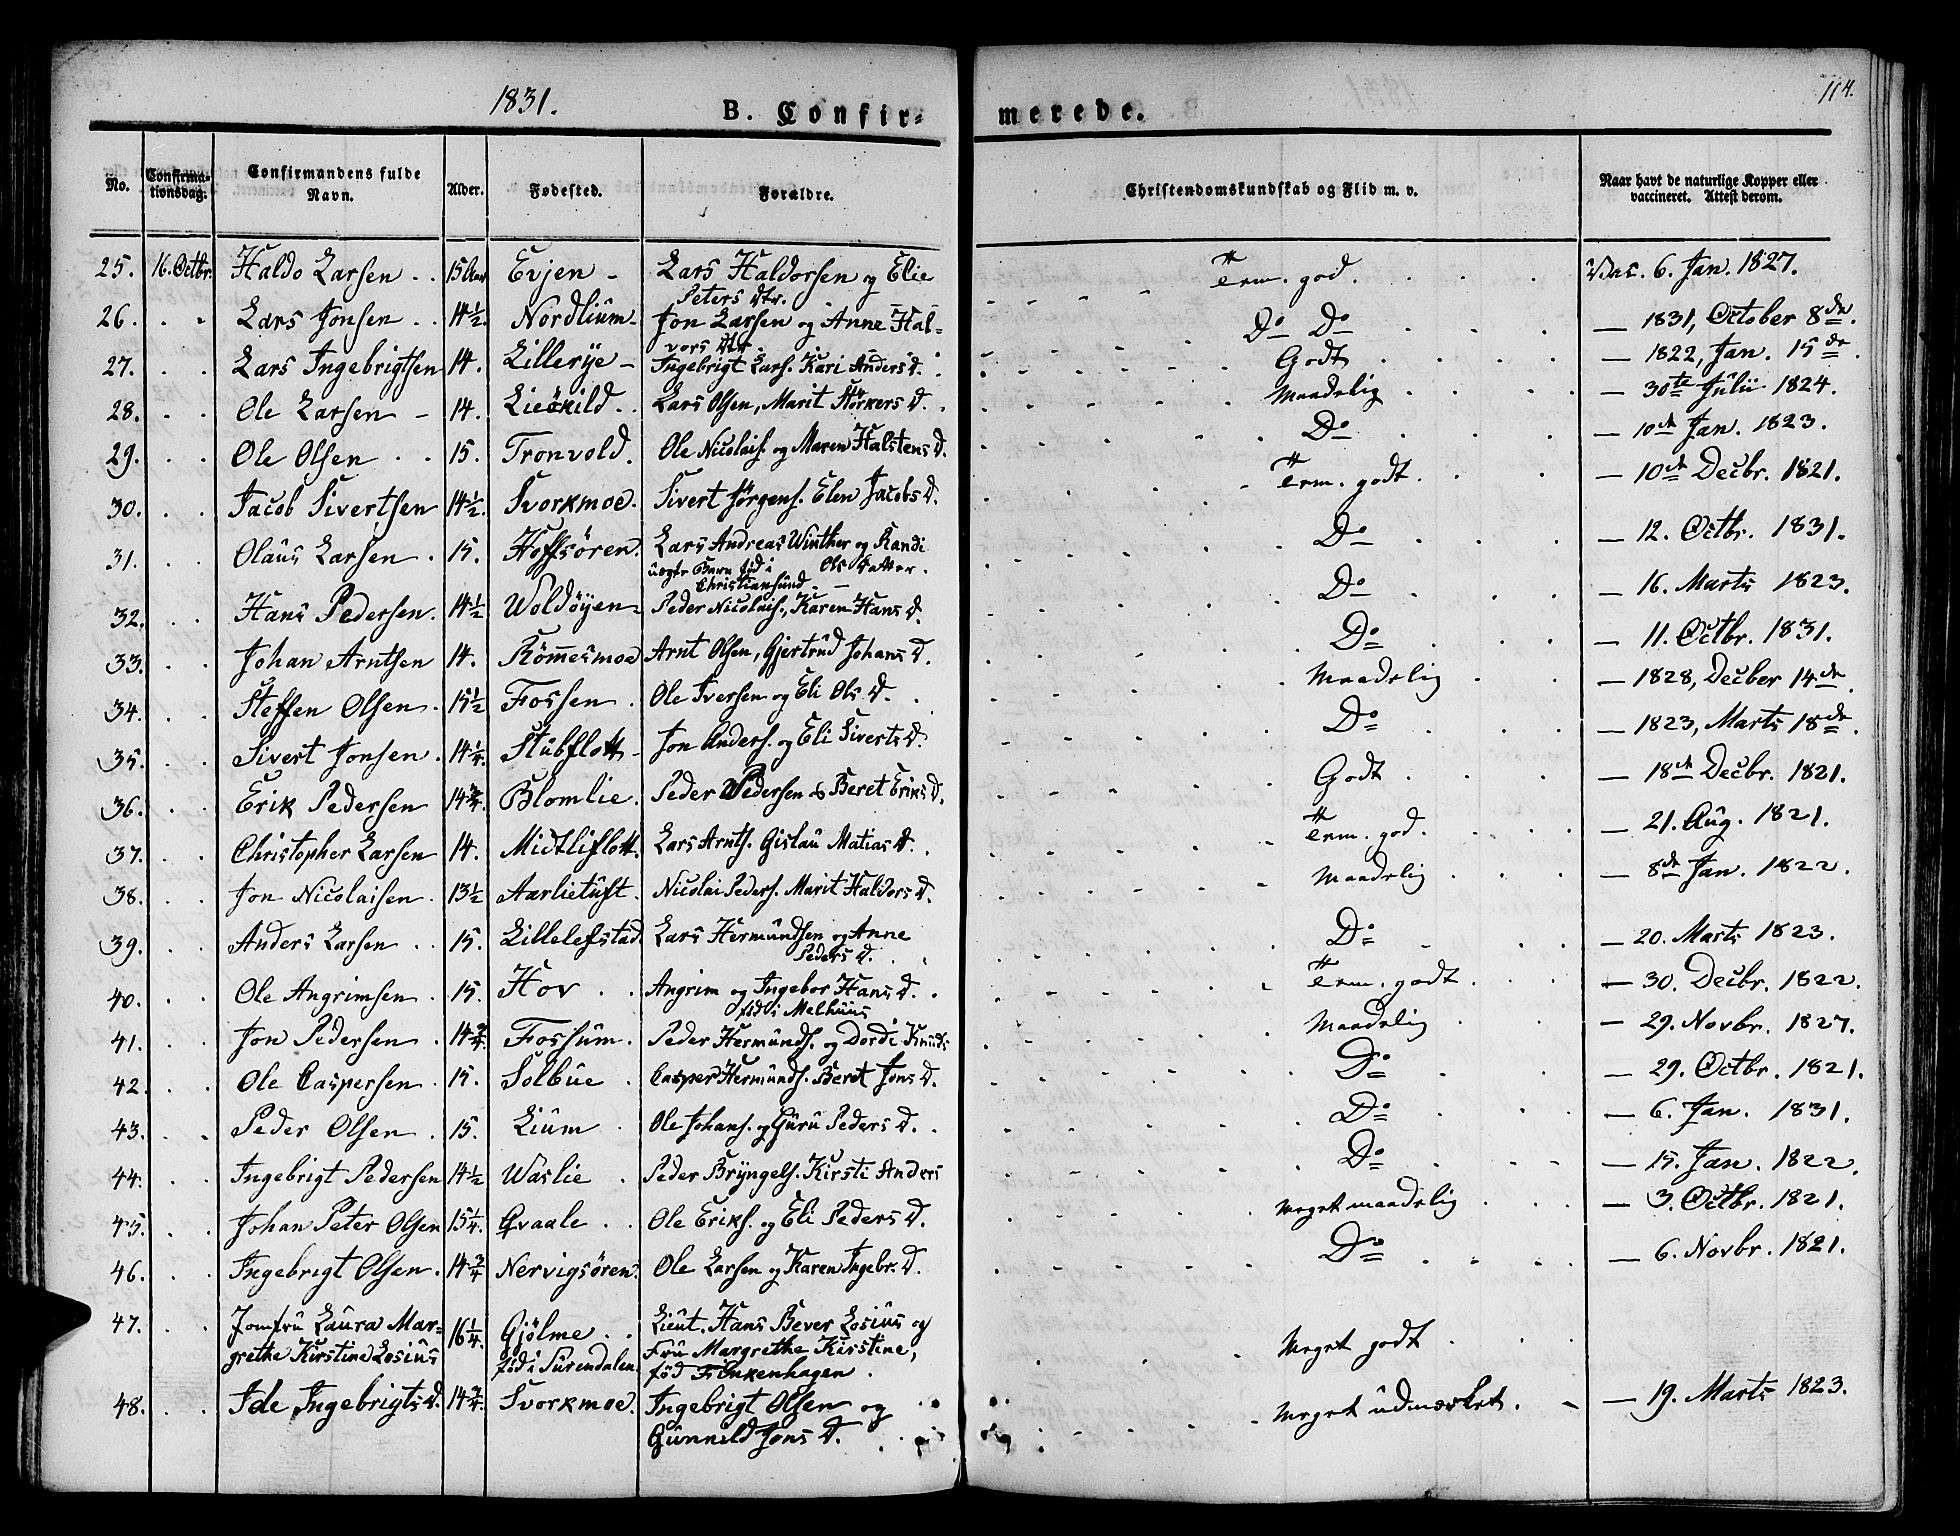 1831.
B. Confir- merede.
114.
No. Confirmationsdag. Confirmandens fulde Navn. Alder. Fødested. Forældre. Christendomskundskab og Flid m. v. Naar havt de naturlige Kopper eller vaccineret. Attest derom.
25. 16. Octbr. Haldo Larsen . . 15 Aar Evjen - Lars Haldorsen og Elie Peters Dtr. Tem. god. Vac. 6. Jan. 1827.
26. . . Lars Jonsen . . 14 1/2. Nordlium - Jon Larsen og Anne Halvors Dtr. Do Do — 1831, October 8de.
27. . . Lars Ingebrigtsen 14. Lillerye - Ingebrigt Lars. Kari Anders D. Godt — 1822, Jan. 15de.
28. . . Ole Larsen - 14. Lieökild . . Lars Olsen, Marit Störkers D. Maadelig — 30te Julii 1824.
29. . . Ole Olsen . . 15. Tronvold. Ole Nicolais. og Maren Halstens D. Do — 10de Jan. 1823.
30. . . Jacob Sivertsen 14 1/2. Svorkmoe. Sivert Jørgens. Elen Jacobs D. Tem. godt. — 10de Decbr. 1821.
31. . . Olaus Larsen . 15. Hoffsören. Lars Andreas Winther og Randi Ols Datter. uægte Barn fød i Christiansund - Do — 12. Octbr. 1831.
32. . . Hans Pedersen. 14 1/2 Woldöyen - Peder Nicolais., Karen Hans D. Do — 16. Marts 1823.
33. . . Johan Arntsen 14. Römmesmoe Arnt Olsen, Gjertrud Johans D. Do — 11. Octbr. 1831.
34. . . Steffen Olsen . 15 1/2 Fossen . Ole Iversen og Eli Ols D. Maadelig — 1828, Decber 14de.
35. . . Sivert Jonsen . 14 1/4. Stubflott - Jon Anders. og Eli Siverts D. Do — 1823, Marts 18de.
36. . . Erik Pedersen 14 3/4. Blomlie. Peder Pedersen & Beret Eriks D. Godt — 18de Decbr. 1821.
37. . . Christopher Larsen 14. Midtliflott. Lars Arnts. Gislau Matias D. Tem. god. — 21. Aug. 1821.
38. . . Jon Nicolaisen. 13 1/2 Aarlietuft. Nicolai Peders. Marit Haldors D. Maadelig — 8de Jan. 1822.
39. . . Anders Larsen . . 15. Lillelefstad. Lars Hermundsen og Anne Peders D. Do — 20. Marts 1823.
40. . . Ole Angrimsen . 15. Hov . . Angrim og Ingebor Hans D. fød i Melhuus Tem. godt — 30. Decbr. 1822.
41. . . Jon Pedersen . 14 3/4. Fossum. Peder Hermunds. og Dordi Knuds Maadelig — 29. Novbr. 1827.
42. . . Ole Caspersen . 15. Solbue . Casper Hermunds. Beret Jons D. Do — 29. Octbr. 1821.
43. . . Peder Olsen . 15. Lium . Ole Johans. og Guru Peders D. Do — 6. Jan. 1831.
44. . . Ingebrigt Pedersen 14 1/2 Waslie . Peder Bryngels. Kirsti Anders Do — 15. Jan. 1822.
45. . . Johan Peter Olsen 15 1/4. Qvaale . . Ole Eriks. og Eli Peders D. Meget maadelig — 3. Octbr. 1821.
46. . . Ingebrigt Olsen. 14 3/4 Nervigsören. Ole Larsen og Karen Ingebr. D. Do — 6. Novbr. 1821.
47. . . Jomfru Laura Margrethe Kirstine Losius 16 1/4. Gjölme . . fød i Surendalen Lieut. Hans Bever Losius og Fru Margrethe Kirstine, fød Finkenhagen. Meget godt
48. . . Ide Ingebrigts D. 14 3/4. Svorkmoe. Ingebrigt Olsen og Gunneld Jons D. Meget udmærket. — 19. Marts 1823.